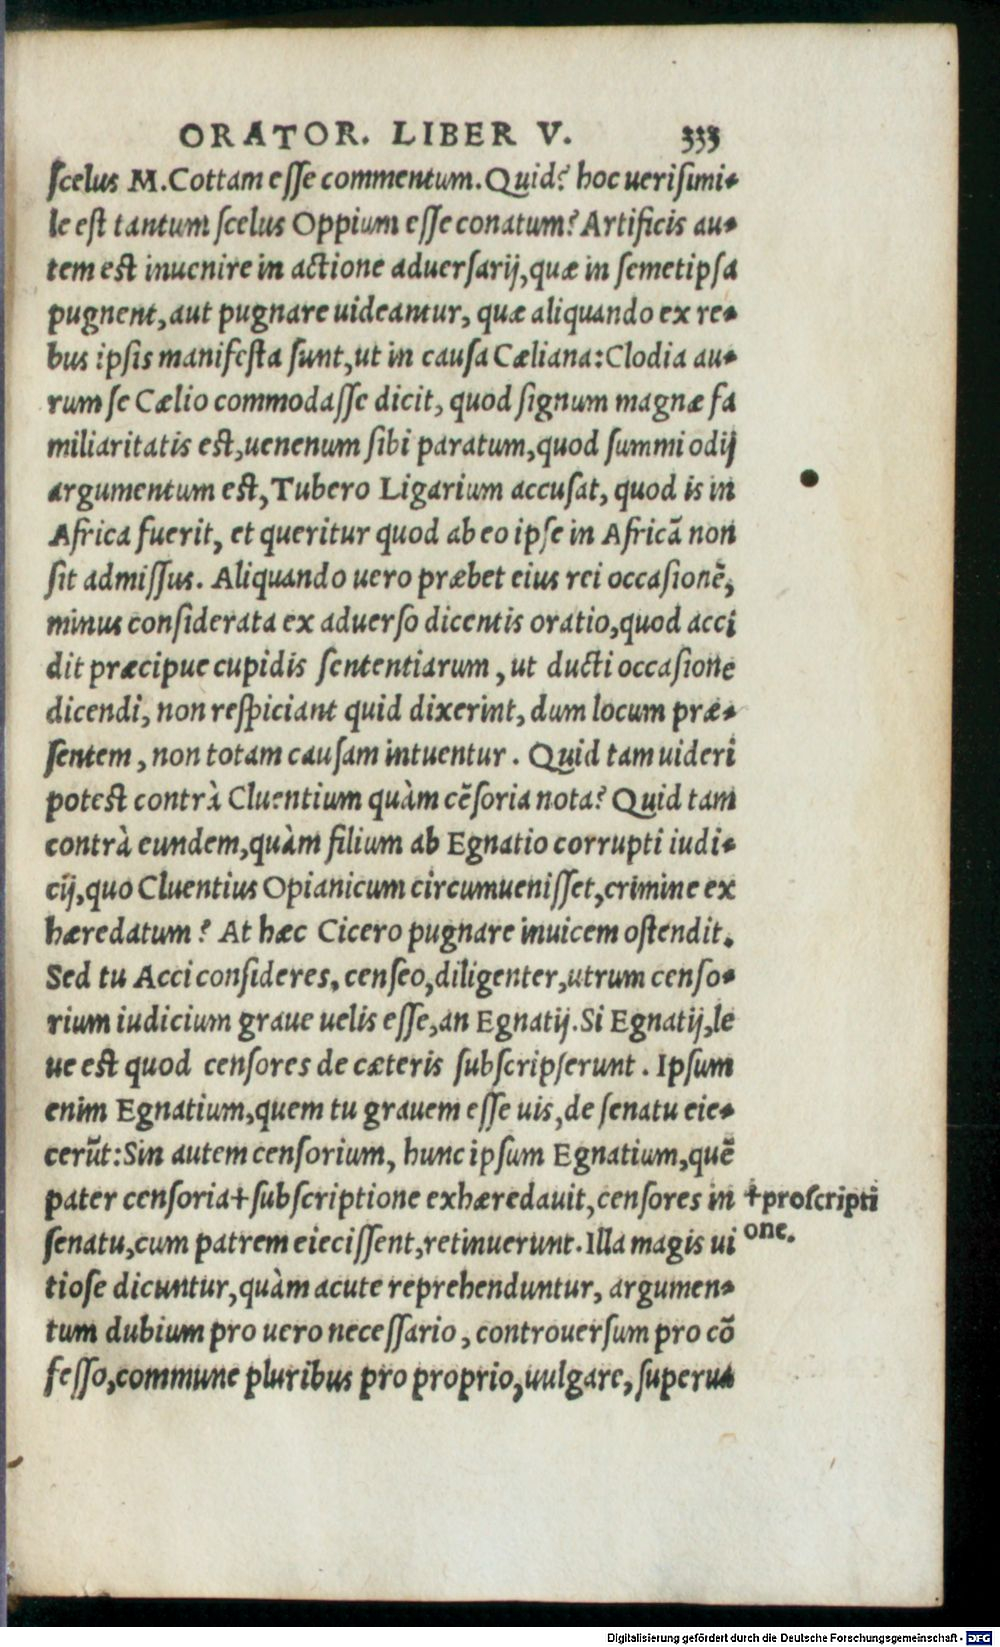 ORATOR. LIBER V. 333
scelus M.Cottam esse commentum.Quid? hoc uerisimi-
le est tantum scelus Oppium esse conatum? Artificis au-
tem est inuenire in actione aduersarij,quæ in semetipsa
pugnent,aut pugnare uideantur, quæ aliquando ex re-
bus ipsis manifesta sunt,ut in causa Cæliana:Clodia au-
rum se Cælio commodasse dicit, quod signum magnæ fa
miliaritatis est,uenenum sibi paratum,quod summi odij
argumentum est,Tubero Ligarium accusat, quod is in
Africa fuerit, et queritur quod ab eo ipse in Africã non
sit admissus. Aliquando uero præbet eius rei occasionẽ,
minus considerata ex aduerso dicentis oratio,quod acci
dit præcipue cupidis sententiarum, ut ducti occasione
dicendi, non respiciant quid dixerint, dum locum præ-
sentem, non totam causam intuentur. Quid tam uideri
potest contrà Cluentium quàm cẽsoria nota? Quid tam
contrà eundem,quàm filium ab Egnatio corrupti iudi-
cij,quo Cluentius Opianicum circumuenisset,crimine ex
hæredatum? At hæc Cicero pugnare inuicem ostendit.
Sed tu Acci consideres, censeo,diligenter,utrum censo-
rium iudicium graue uelis esse,an Egnatij.Si Egnatij,le
ue est quod censores de cæteris subscripserunt. Ipsum
enim Egnatium,quem tu grauem esse uis,de senatu eie-
cerũt:Sin autem censorium, hunc ipsum Egnatium,quẽ
pater censoria†subscriptione exhæredauit,censores in †proscripti
senatu,cum patrem eiecissent,retinuerunt.Illa magis ui one.
tiose dicuntur,quàm acute reprehenduntur, argumen-
tum dubium pro uero necessario, controuersum pro cõ
fesso,commune pluribus pro proprio,uulgare, superua
Digitalisierung gefördert durch die Deutsche Forschungsgemeinschaft - DFG